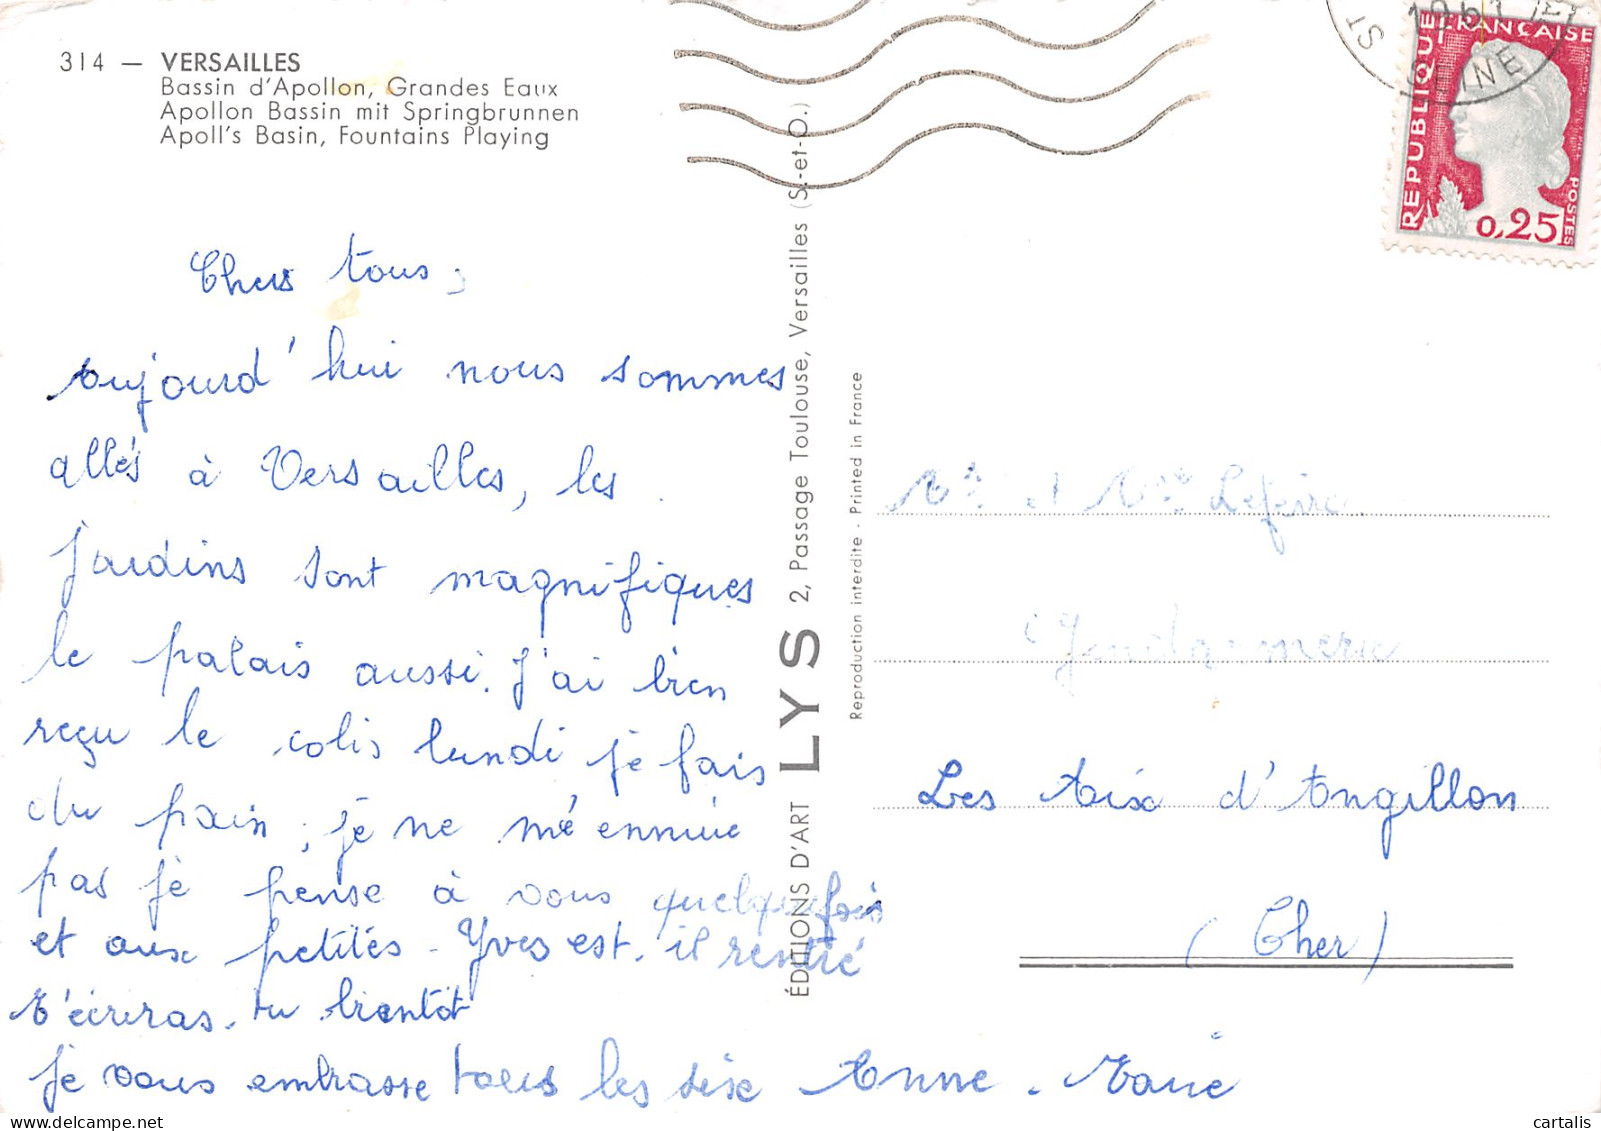 314 — VERSAILLES
Bassin d'Apollon, Grandes Eaux
Apollon Bassin mit Springbrunnen
Apoll's Basin, Fountains Playing
Chers tous,
aujourd'hui nous sommes
allés à Versailles, les
jardins sont magnifiques
le palais aussi. J'ai bien
reçu le colis lundi, je fais
du pain, je ne m'ennuie
pas je pense à vous quelquefois
et aux petites - Yves est-il rentré
t'écriras-tu bientôt
je vous embrasse tous les six Anne-Marie
ÉDITIONS D'ART LYS 2, Passage Toulouse, Versailles (S.-et-O.)
Reproduction interdite - Printed in France
1961
SEINE
RÉPUBLIQUE FRANÇAISE
POSTES
0,25
Mr et Mme Lefèvre
Gendarmerie
Les Aix d'Angillon
(Cher)
cartalis.com